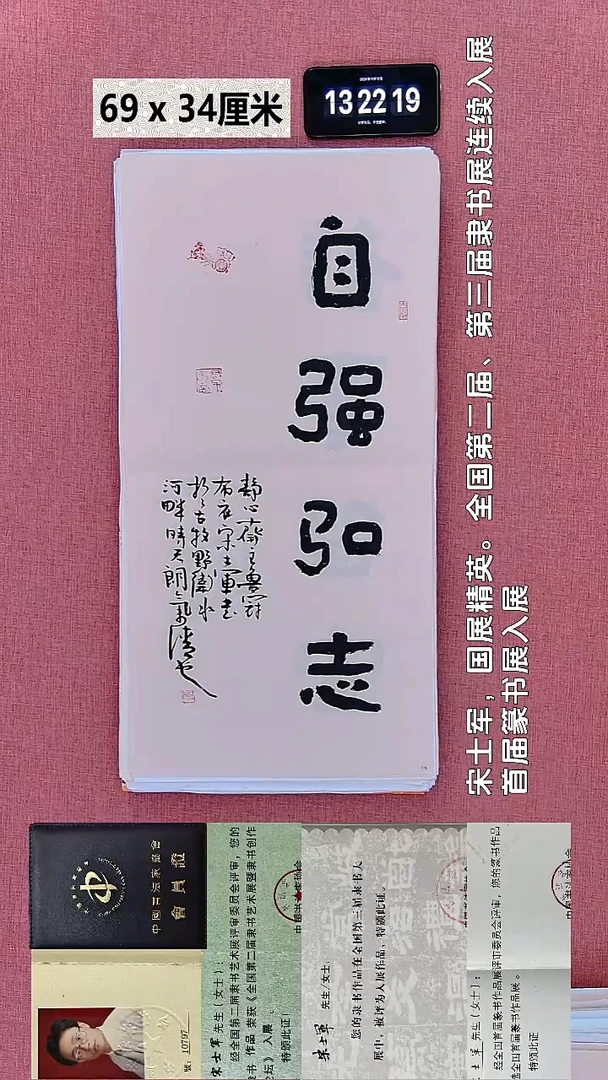 69 x 34厘米
13 22 19
自强弘志
静心斋主
布衣宋士军书
于古牧野卫水
河畔晴天朗气清也
宋士军，国展精英。全国第二届、第三届隶书展连续入展
首届篆书展入展
中國書法家協會
會員證
號: 10797
宋士军 先生(女士):
经全国第二届隶书艺术展评审委员会评审，您的
隶书 作品 荣获《全国第二届隶书艺术展暨隶书创作
论坛》入展。
特颁此证!
宋士军 先生/女士:
您的隶书作品在全国第三届隶书大
展中，被评为入展作品，特颁此证。
士军 先生(女士):
经全国首届篆书作品展评审委员会评审，您的篆书作品
选全国首届篆书作品展。
特颁此证